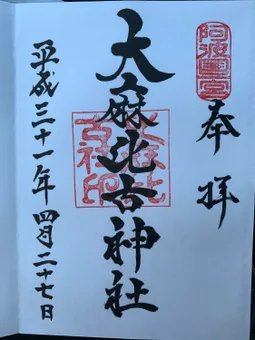 阿波國一宮
奉拝
大麻比古神社
大麻比
古社印
平成三十一年四月二十七日